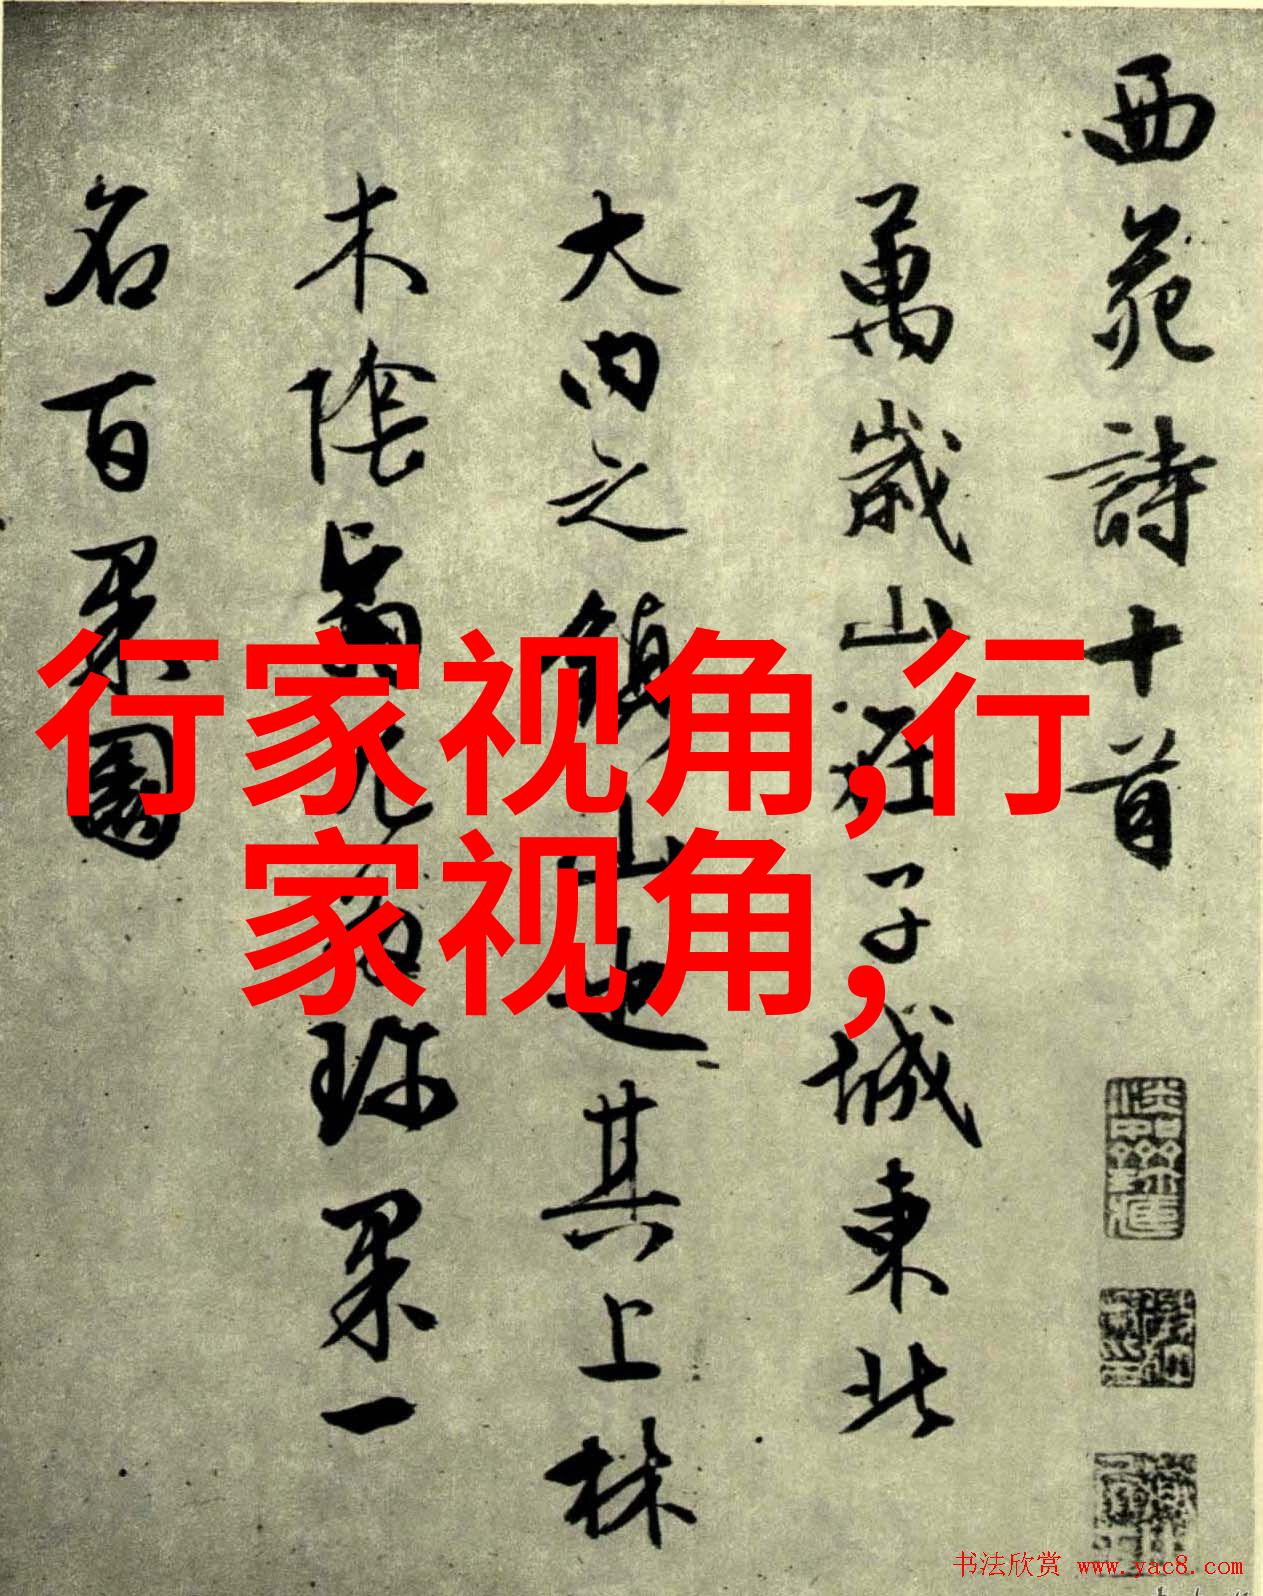 西苑詩十首
萬歲山在子城東北
大內之鎮山也其上林
木陰翳尤多珍果一
名百果園
行家视角,行
家视角,
书法欣赏 www.yac8.com